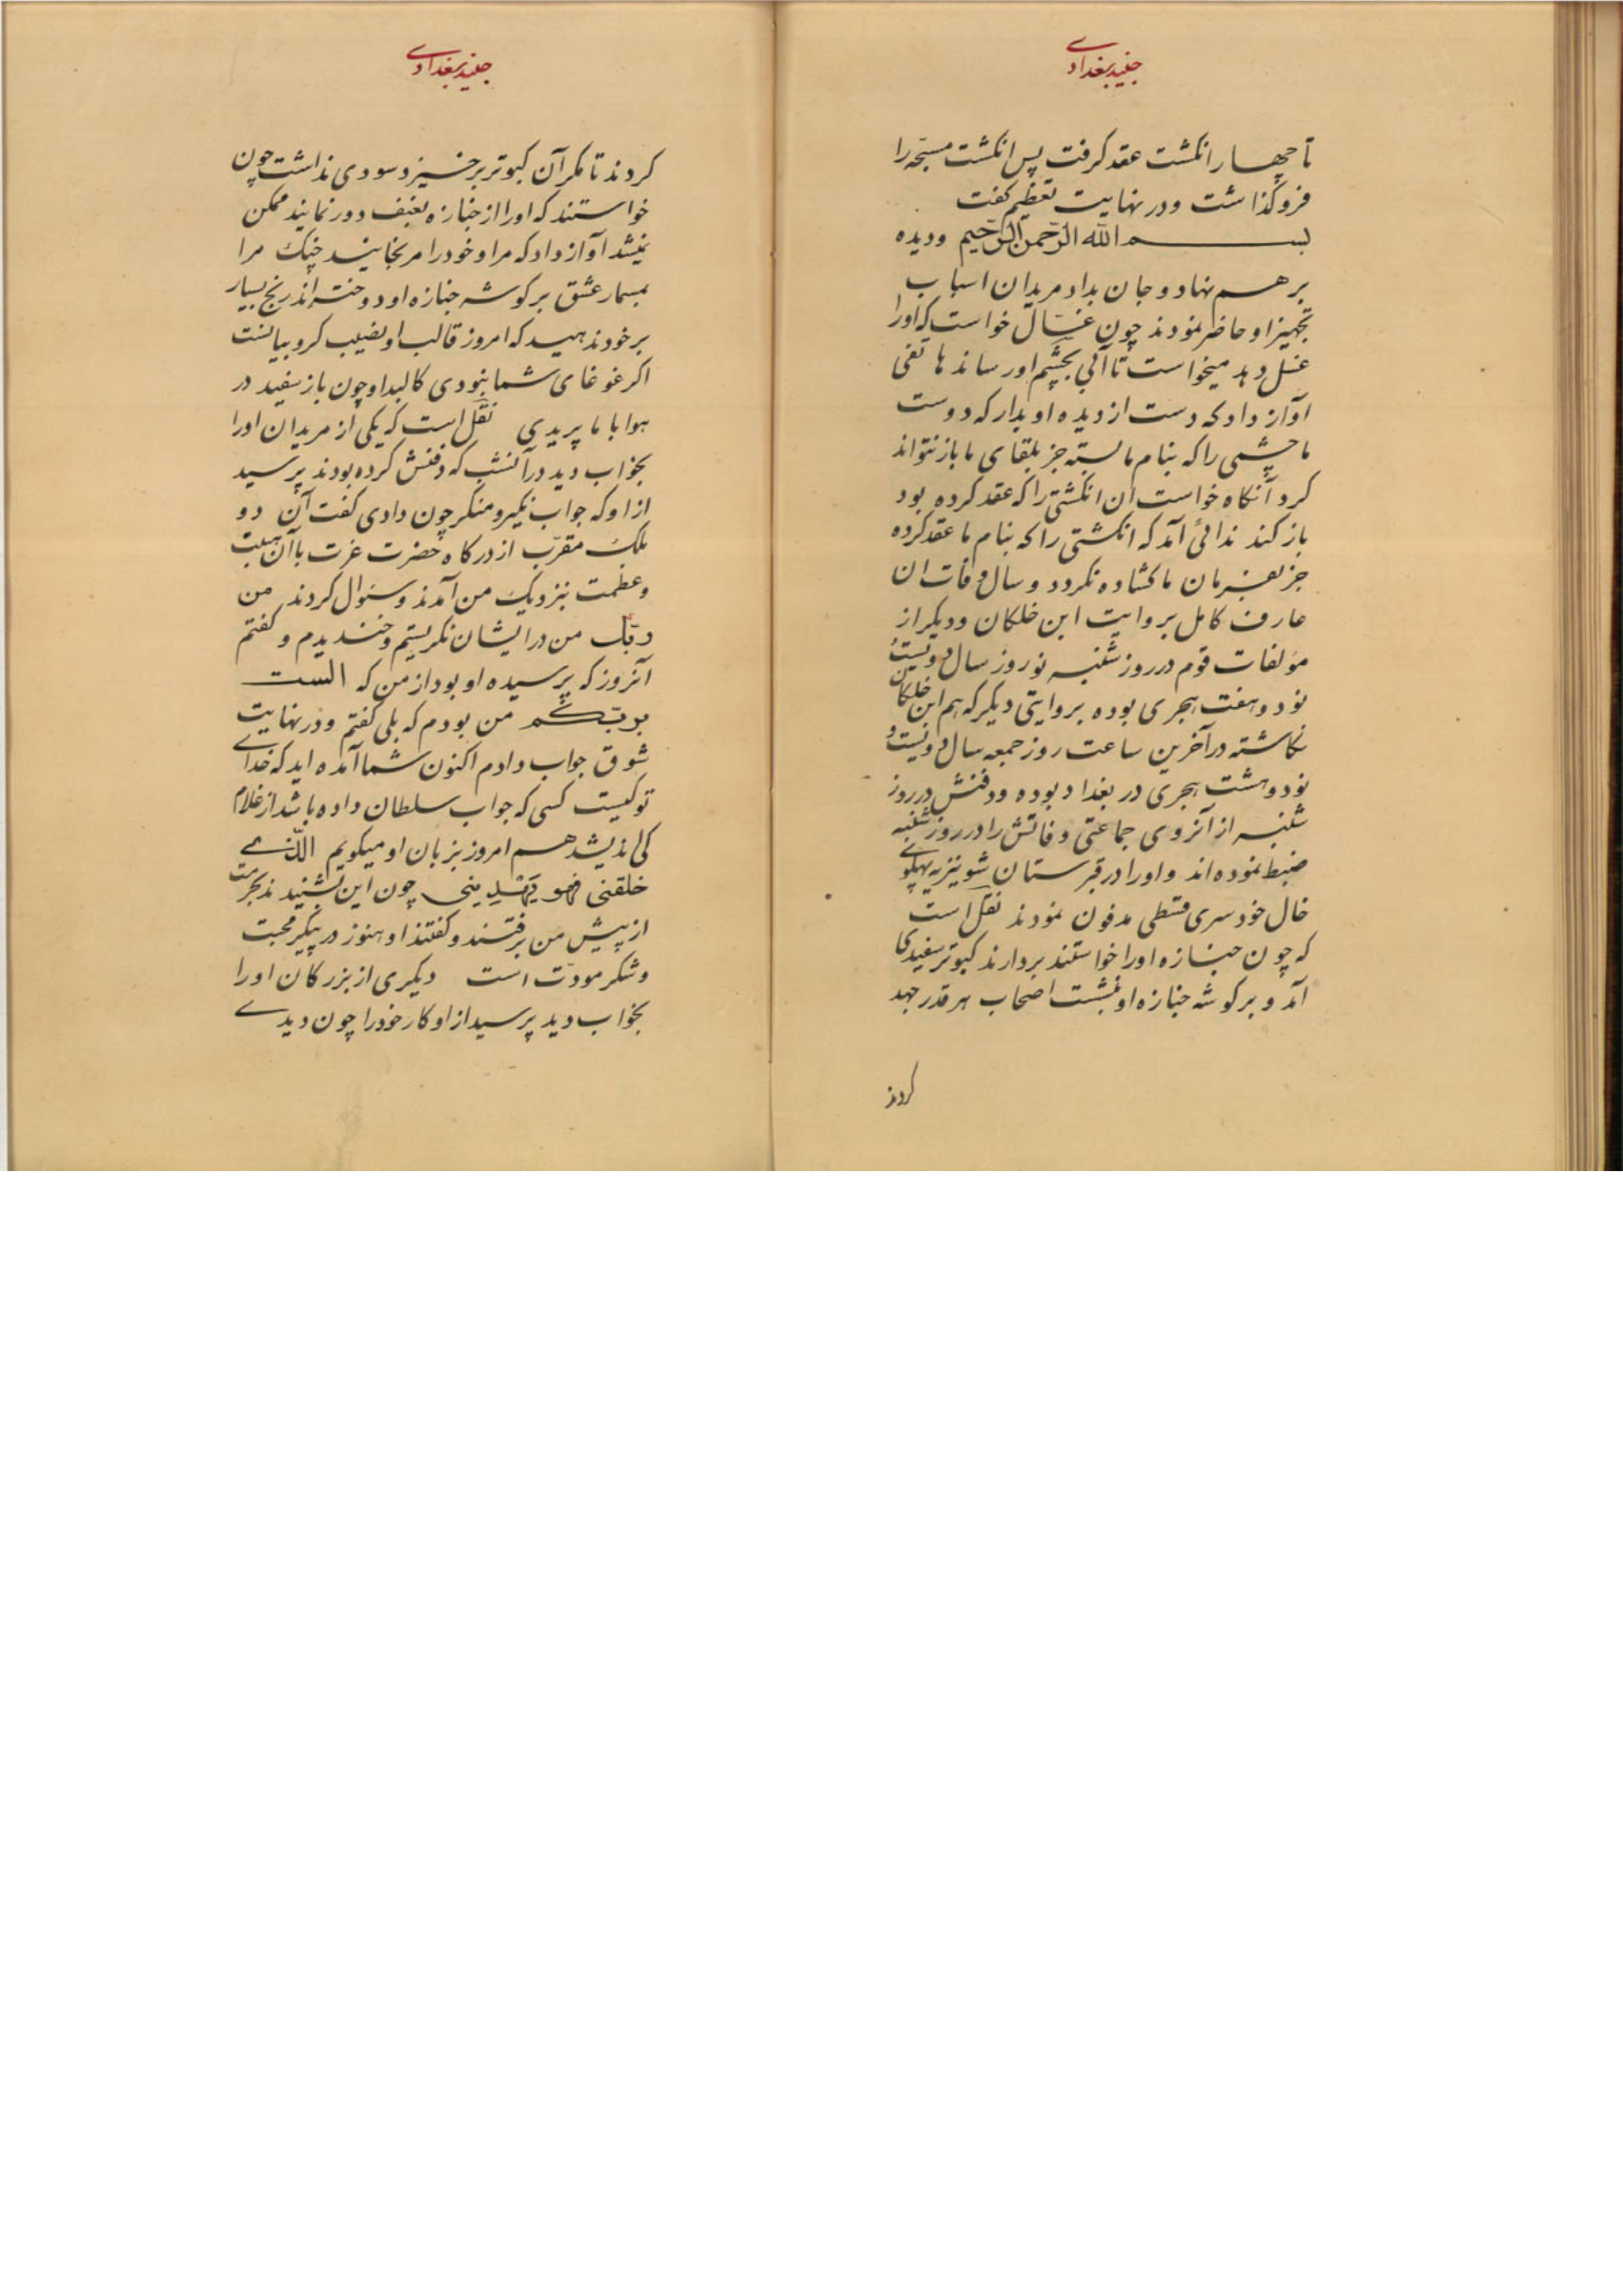 جنید بغدادی
تا چهار انکشت عقد کرفت پس انکشت مسبحه را
فرو کذاشت و در نهایت تعظیم کفت
بسم الله الرّحمن الرّحیم و دیده
بر هم نهاد و جان بداد مریدان اسباب
تجهیز او حاضر نمودند چون غسّال خواست که او را
غسل دهد میخواست تا آبی بچشم او رساند هاتفی
آواز داد که دست از دیده او بدار که دوست
ما چشمی را که بنام ما بسته جز بلقای ما باز نتواند
کرد آنکاه خواست ان انکشتی را که عقد کرده بود
باز کند ندائی آمد که انکشتی را که بنام ما عقد کرده
جز بفرمان ما کشاده نکردد و سال وفات ان
عارف کامل بروایت ابن خلکان و دیکر از
مؤلفات قوم در روز شنبه نوروز سال دویست و
نود و هفت هجری بوده بروایتی دیکر که هم ابن خلکان
نکاشته در آخرین ساعت روز جمعه سال دویست و
نود و هشت هجری در بغداد بوده و دفنش در روز
شنبه از آنروی جماعتی وفاتش را در روز شنبه
ضبط نموده اند و او را در قبرستان شونیزیه پهلوی
خال خود سری سقطی مدفون نمودند نقل است
که چون جنازه او را خواستند بردارند کبوتر سفیدی
آمد و بر کوشه جنازه او نشست اصحاب هر قدر جهد
کردند
جنید بغدادی
کردند تا مکر آن کبوتر برخیزد سودی نداشت چون
خواستند که او را از جنازه بعنف دور نمایند ممکن
نمیشد آواز داد که مرا و خود را مرنجانید چنک مرا
بمسمار عشق بر کوشه جنازه او دوخته اند رنج بسیار
بر خود ندهید که امروز قالب او نصیب کروبیانست
اکر غوغای شما نبودی کالبد او چون باز سفید در
هوا با ما پریدی نقل است که یکی از مریدان او را
بخواب دید در آنشب که دفنش کرده بودند پرسید
از او که جواب نکیر و منکر چون دادی کفت آن دو
ملک مقرّب از درکاه حضرت عزت با آن هیبت
و عظمت بنزدیک من آمدند و سئوال کردند من
ربّک من در ایشان نکریستم و خندیدم و کفتم
آنروز که پرسیده او بود از من که الست
بربّکم من بودم که بلی کفتم و در نهایت
شوق جواب دادم اکنون شما آمده اید که خدای
تو کیست کسی که جواب سلطان داده باشد از غلام
کی اندیشد هم امروز بزبان او میکویم الّذی
خلقنی فهو یهدینی چون این بشنیدند بحرمت
از پیش من برفتند و کفتند او هنوز در محبت
و سکر مودّت است دیکری از بزرکان او را
بخواب دید پرسید از او کار خود را چون دیدی